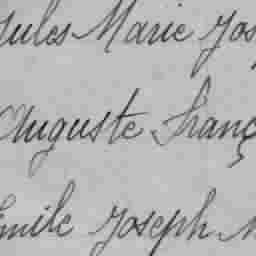 Jules Marie Jos
Auguste Franç
Emile Joseph M